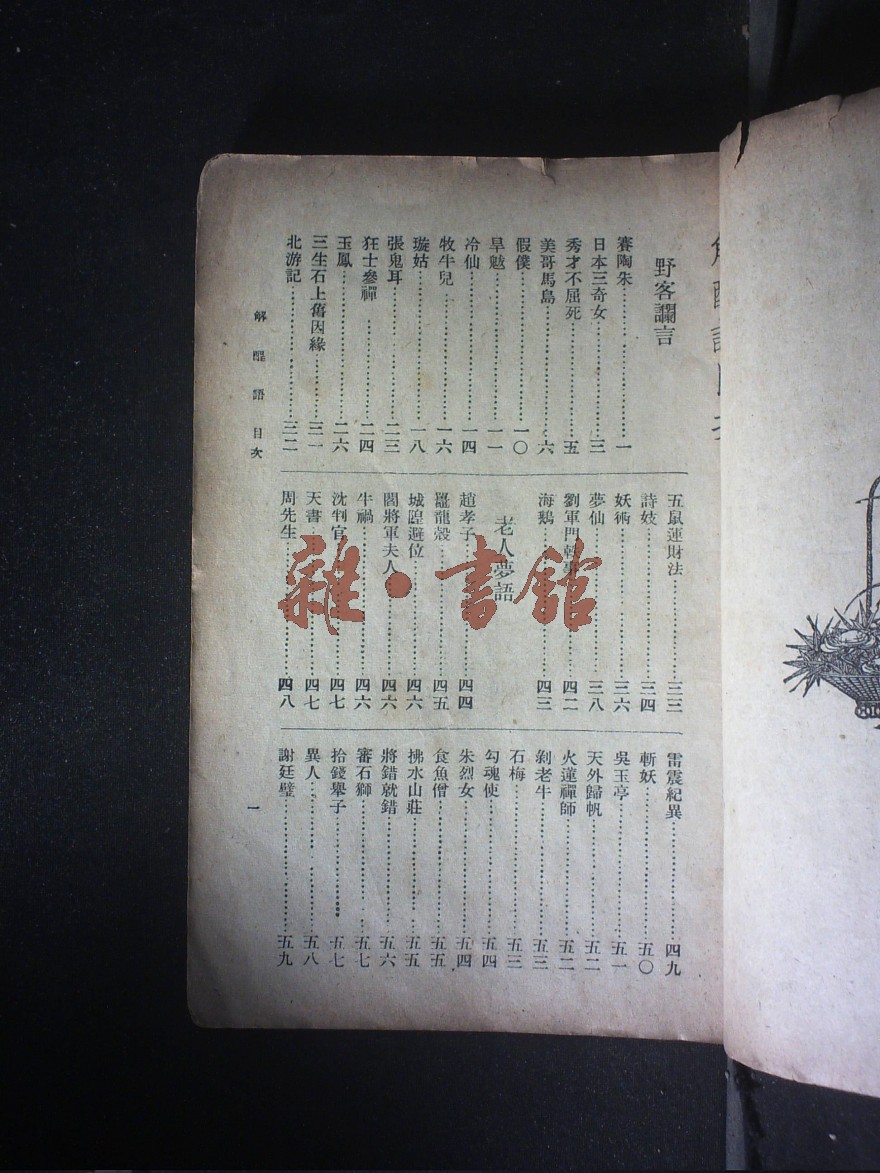 野客讕言
賽陶朱一
日本三奇女三
秀才不屈死五
美哥馬島六
假僕一〇
旱魃一一
冷仙一四
牧牛兒一六
璇姑一八
張鬼耳二三
狂士參禪二四
玉鳳二六
三生石上舊因緣三一
北游記三二
五鼠運財法三三
詩妓三四
妖術三六
夢仙三八
劉軍門軼事四二
海鵝四三
老人夢語
趙孝子四四
鼉龍殼四五
城隍避位四六
閻將軍夫人四六
牛禍四六
沈判官四七
天書四七
周先生四八
雷震紀異四九
斬妖五〇
吳玉亭五一
天外歸帆五二
火蓮禪師五二
剝老牛五三
石梅五三
勾魂使五四
朱烈女五四
食魚僧五五
拂水山莊五五
將錯就錯五六
審石獅五七
拾錢舉子五七
異人五八
謝廷璧五九
解酲語 目次
一
雜·書館